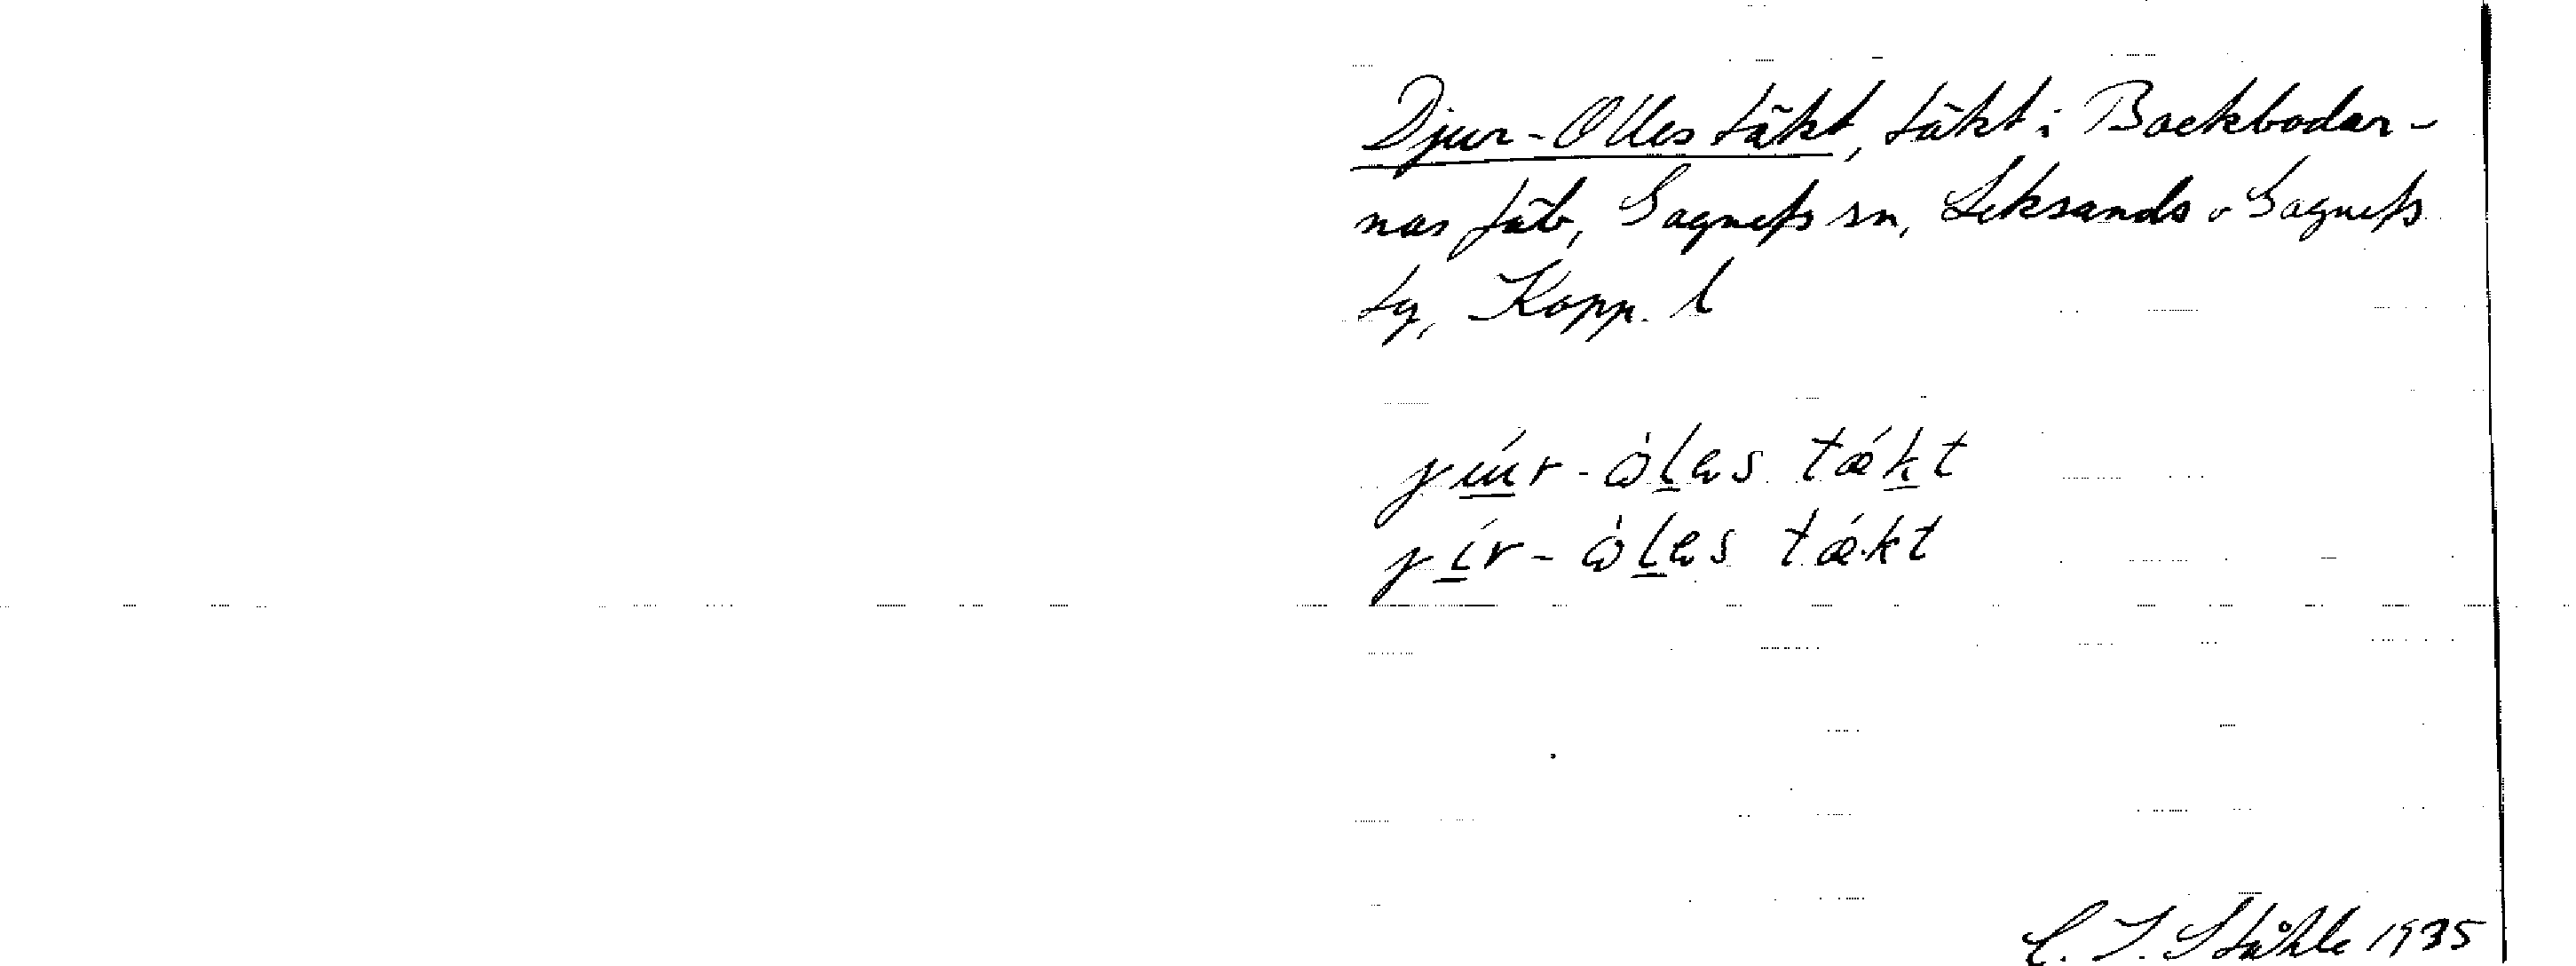 Djur-Olles täkt, täkt i Backbodar-
nas fäb, Gagnefs sn, Leksands o Gagnefs
tg, Kopp. l
ɉɯ́r-ὼlɐs tǽkt
ɉír-ὼlɐs tǽ.kt
C. I. Ståhle 1935